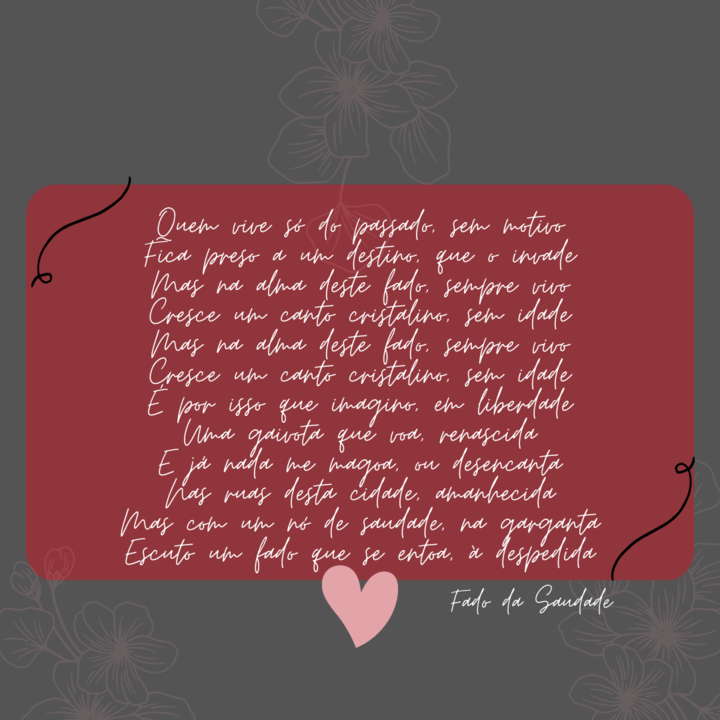 Quem vive só do passado, sem motivo
Fica preso a um destino, que o invade
Mas na alma deste fado, sempre vivo
Cresce um canto cristalino, sem idade
Mas na alma deste fado, sempre vivo
Cresce um canto cristalino, sem idade
É por isso que imagino, em liberdade
Uma gaivota que voa, renascida
E já nada me magoa, ou desencanta
Nas ruas desta cidade, amanhecida
Mas com um nó de saudade, na garganta
Escuto um fado que se entoa, à despedida
Fado da Saudade